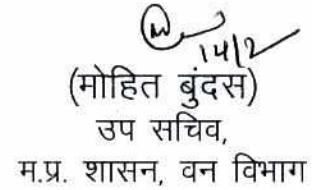 14/2
(मोहित बुंदस)
उप सचिव,
म.प्र. शासन, वन विभाग